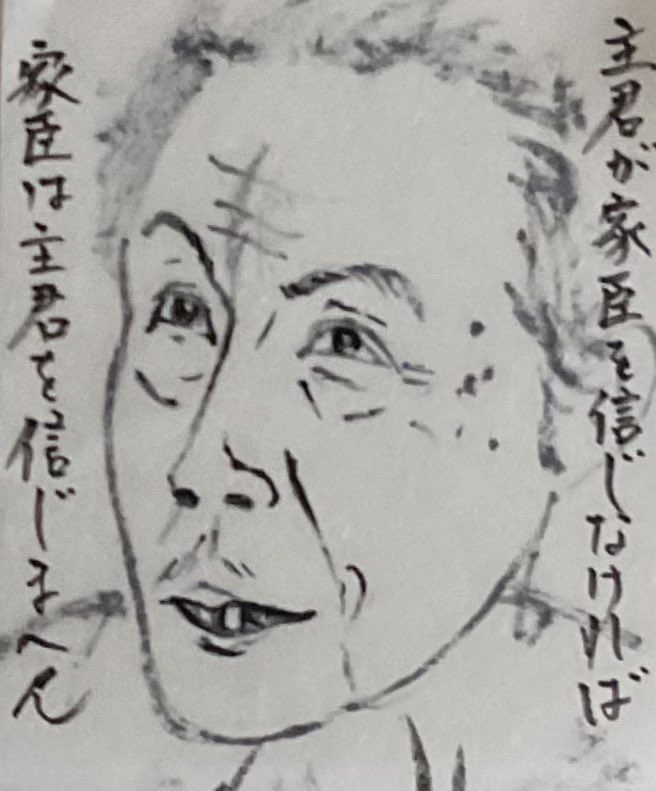 主君が家臣を信じなければ
家臣は主君を信じまへん